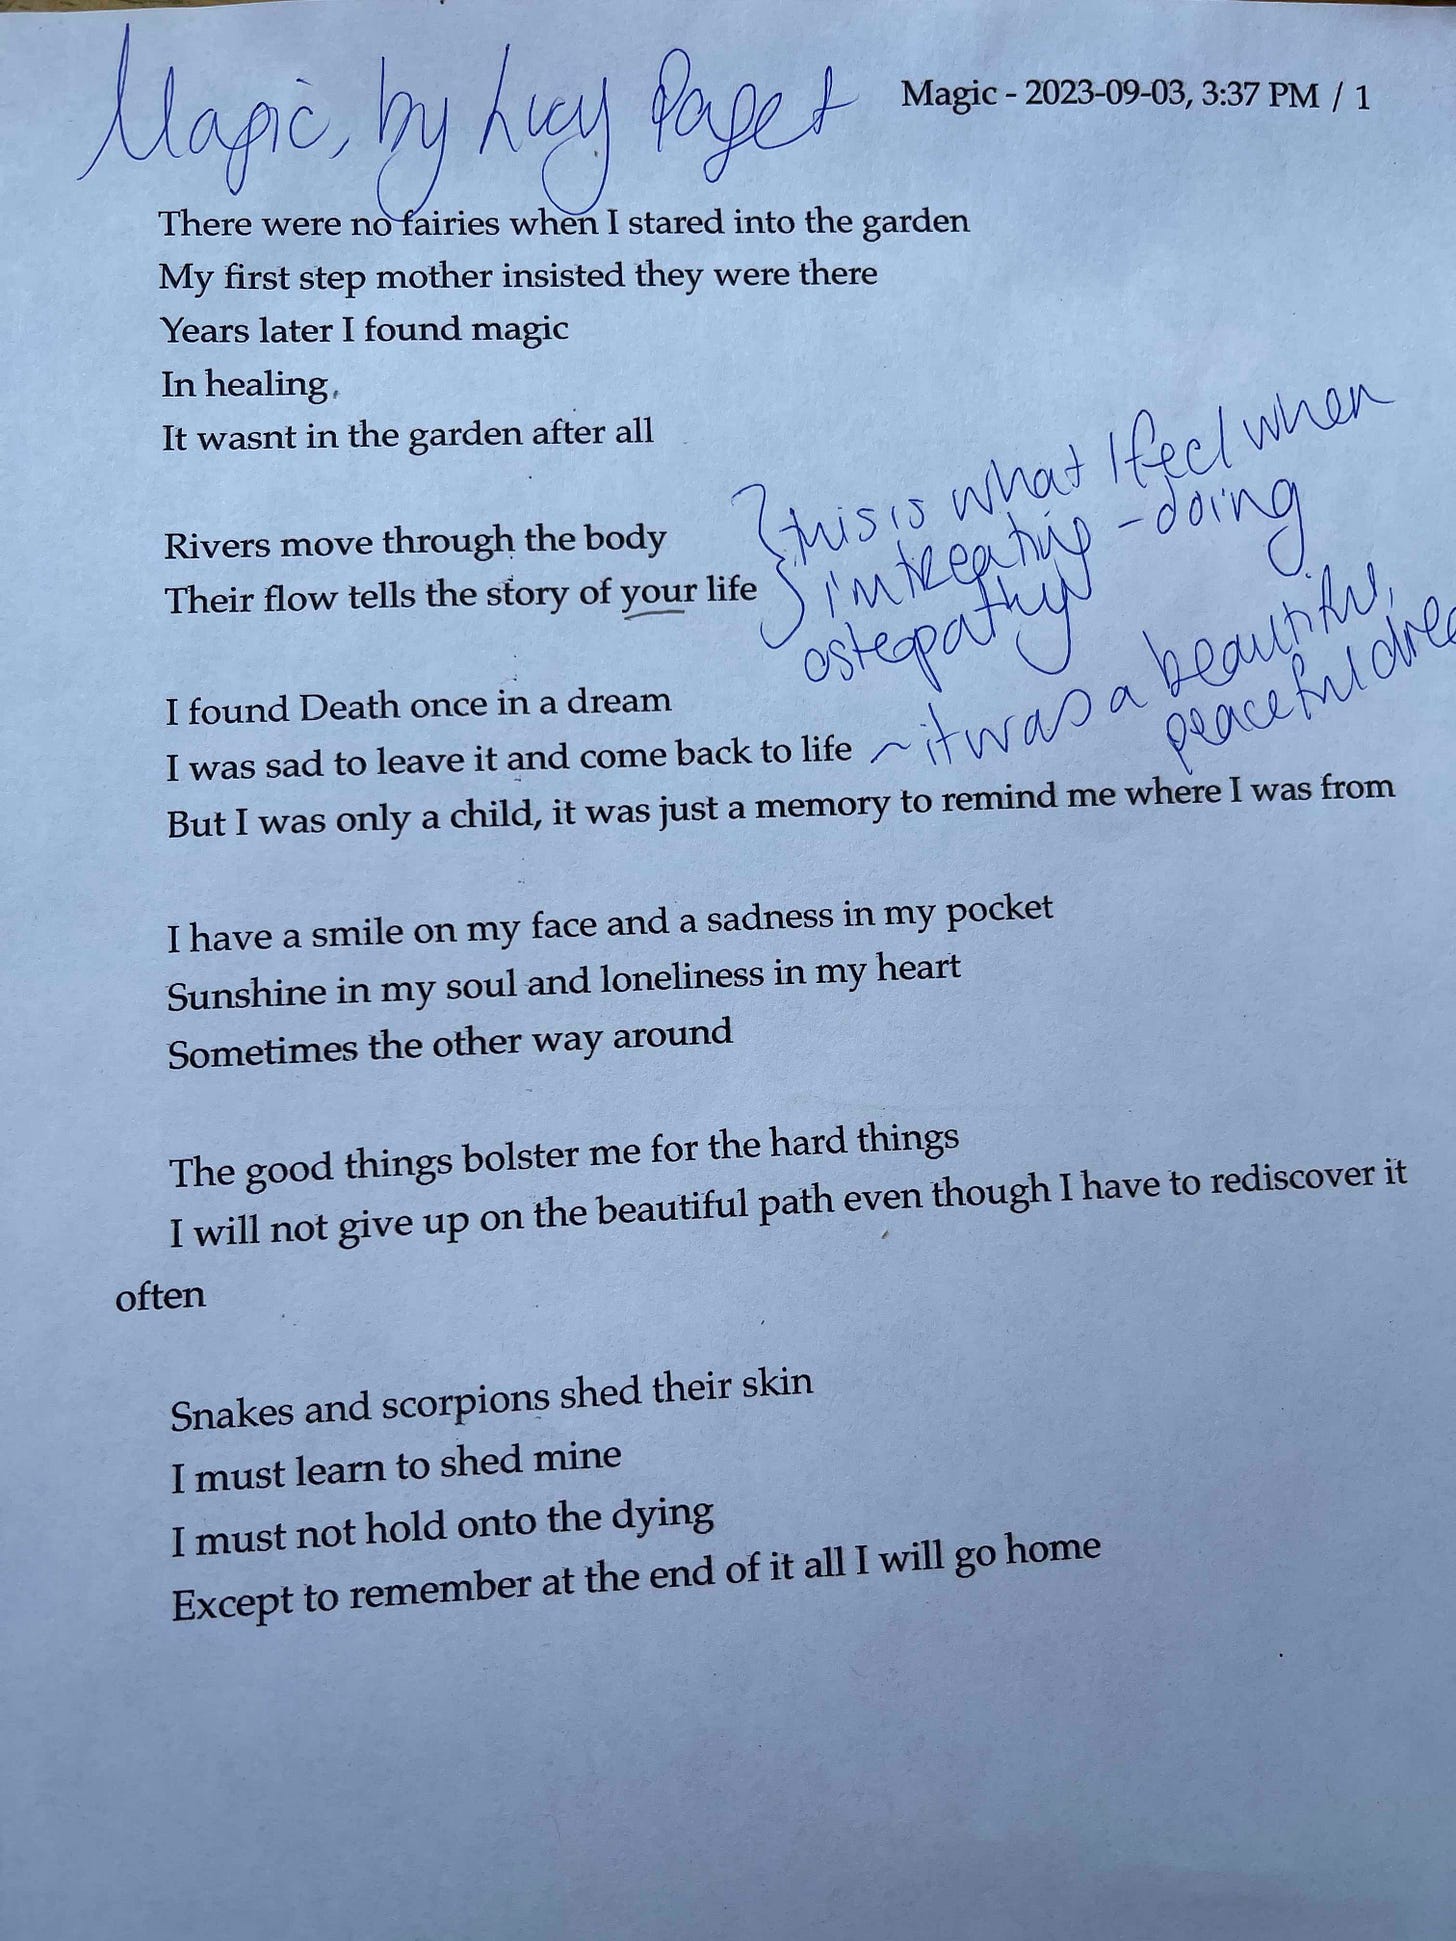 Magic, by Lucy Paget
Magic - 2023-09-03, 3:37 PM / 1
There were no fairies when I stared into the garden
My first step mother insisted they were there
Years later I found magic
In healing,
It wasnt in the garden after all
Rivers move through the body
Their flow tells the story of your life
this is what I feel when
I'm treating - doing
osteopathy
I found Death once in a dream
I was sad to leave it and come back to life
~ it was a beautiful,
peaceful
But I was only a child, it was just a memory to remind me where I was from
I have a smile on my face and a sadness in my pocket
Sunshine in my soul and loneliness in my heart
Sometimes the other way around
The good things bolster me for the hard things
I will not give up on the beautiful path even though I have to rediscover it
often
Snakes and scorpions shed their skin
I must learn to shed mine
I must not hold onto the dying
Except to remember at the end of it all I will go home